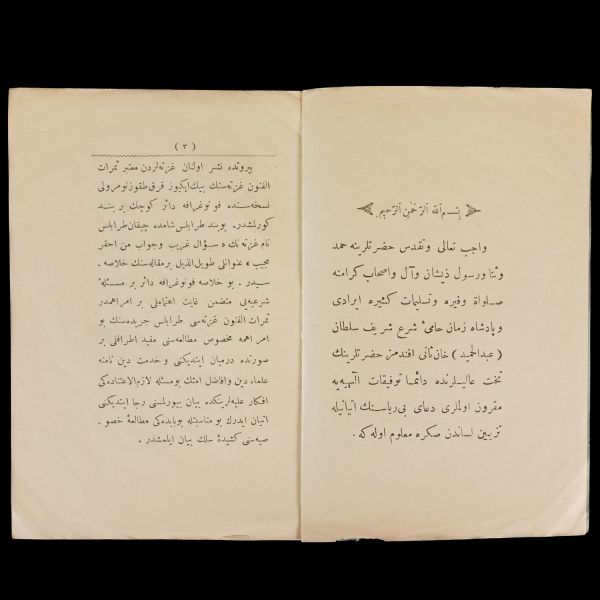 بسم الله الرحمن الرحيم
واجب تعالى وتقدس حضرتلرينه حمد
وثنا ورسول ذيشان وآل واصحاب كرامنه
صلواة وفيره وتسليمات كثيره ايرادى
وپادشاه زمان حامئ شرع شريف سلطان
(عبدالحميد) خان ثانى افندمز حضرتلرينك
تخت عاليلرنده دائما توفيقات الهيه يه
مقرون اولملرى دعاى بى رياسنك اتيانيله
تزيين لساندن صكره معلوم اوله كه .
(٣)
بيروتده نشر اولنان غزته لردن معتبر ثمرات
الفنون غزته سنك بيك ايكيوز قرق طقوز نومرولى
نسخه سنده فونوغرافه دائر كوچك بر بند
كورلمشدر. بو بند طرابلس شامده چيقان طرابلس
نام غزته نك « سؤال غريب وجواب من احقر
مجيب » عنوانلى طويل الذيل بر مقاله سنك خلاصه -
سيدر . بو خلاصه فونوغرافه دائر بر مسئلهٔ
شرعيه يى متضمن غايت اهتماملى بر امر اهمدر
ثمرات الفنون غزته سى طرابلس جريده سنك بو
امر اهمه مخصوص مطالعه سنى مفيد اطرافلى بر
صورتده درميان ايتديكنى و خدمت دين تامنه
علماء دين وافاضل امتك بومسئله لازم الاعتناده كى
افكار عليه لرينكده بيان بيورلمسنى رجا ايتديكنى
اتيان ايدرك بو مناسبتله بوبابده كى مطالعهٔ خصو -
صيه سنى كشيدهٔ سلك بيان ايلمشدر .